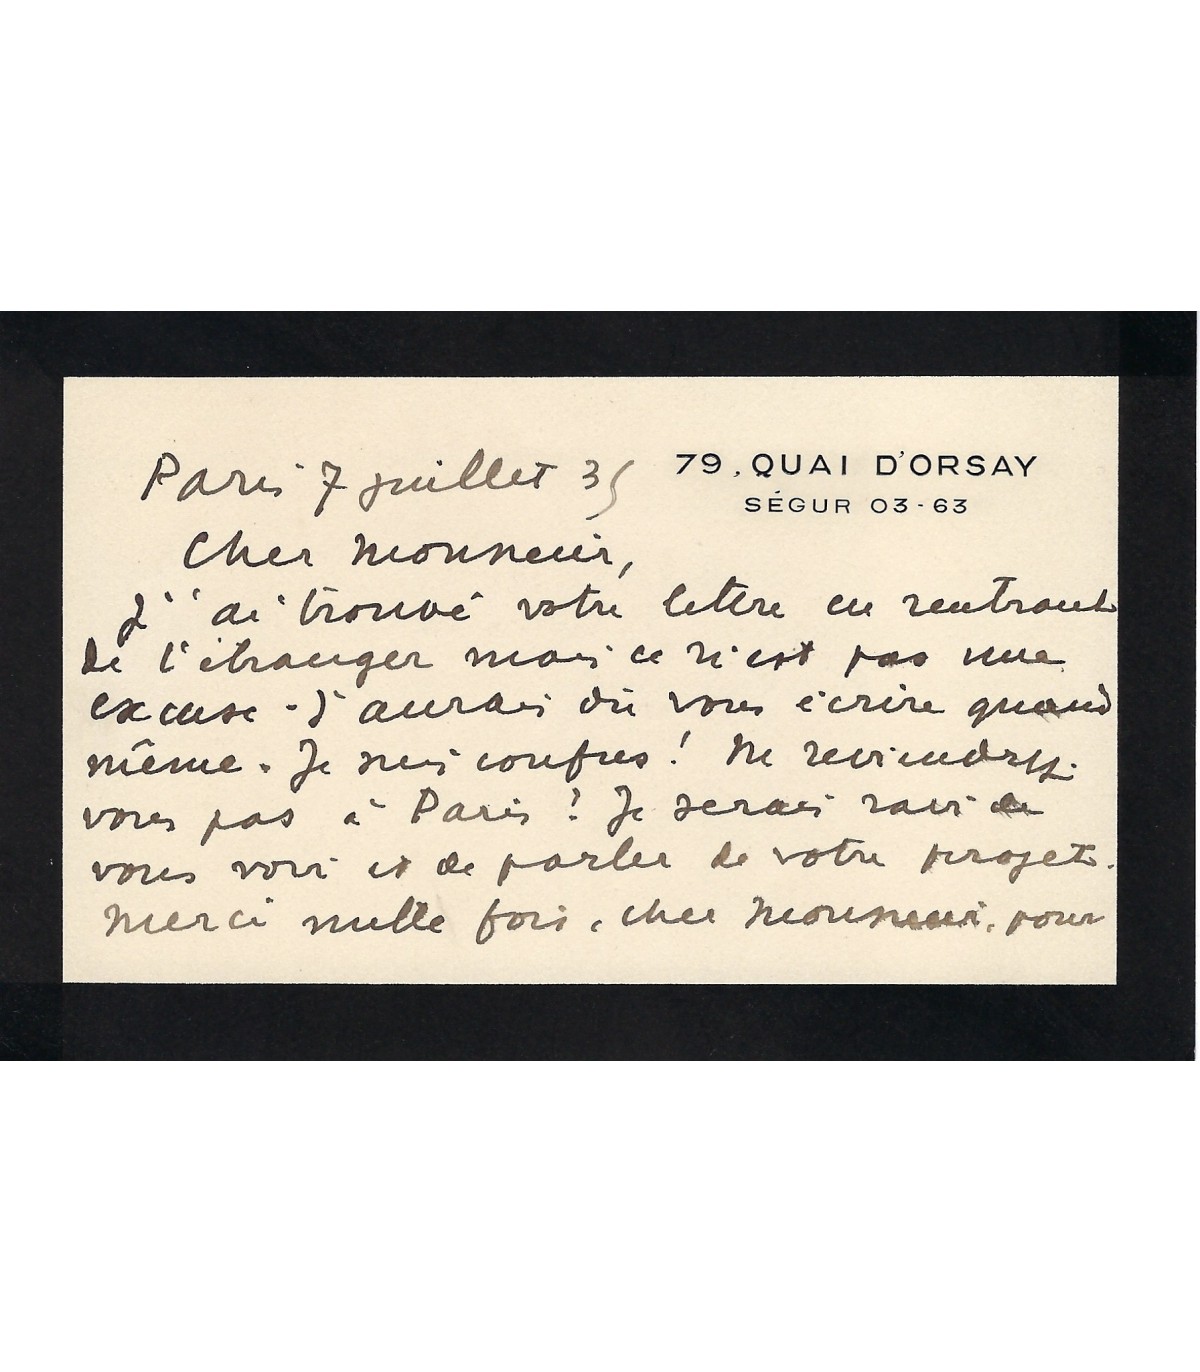 79, QUAI D'ORSAY
SÉGUR 03-63
Paris 7 juillet 35
Cher Monsieur,
J'ai trouvé votre lettre en rentrant
de l'étranger mais ce n'est pas une
excuse - J'aurais dû vous écrire quand
même. Je suis confus! Ne reviendrez-
vous pas à Paris? Je serais ravi de
vous voir et de parler de votre projet.
Merci mille fois, cher Monsieur, pour